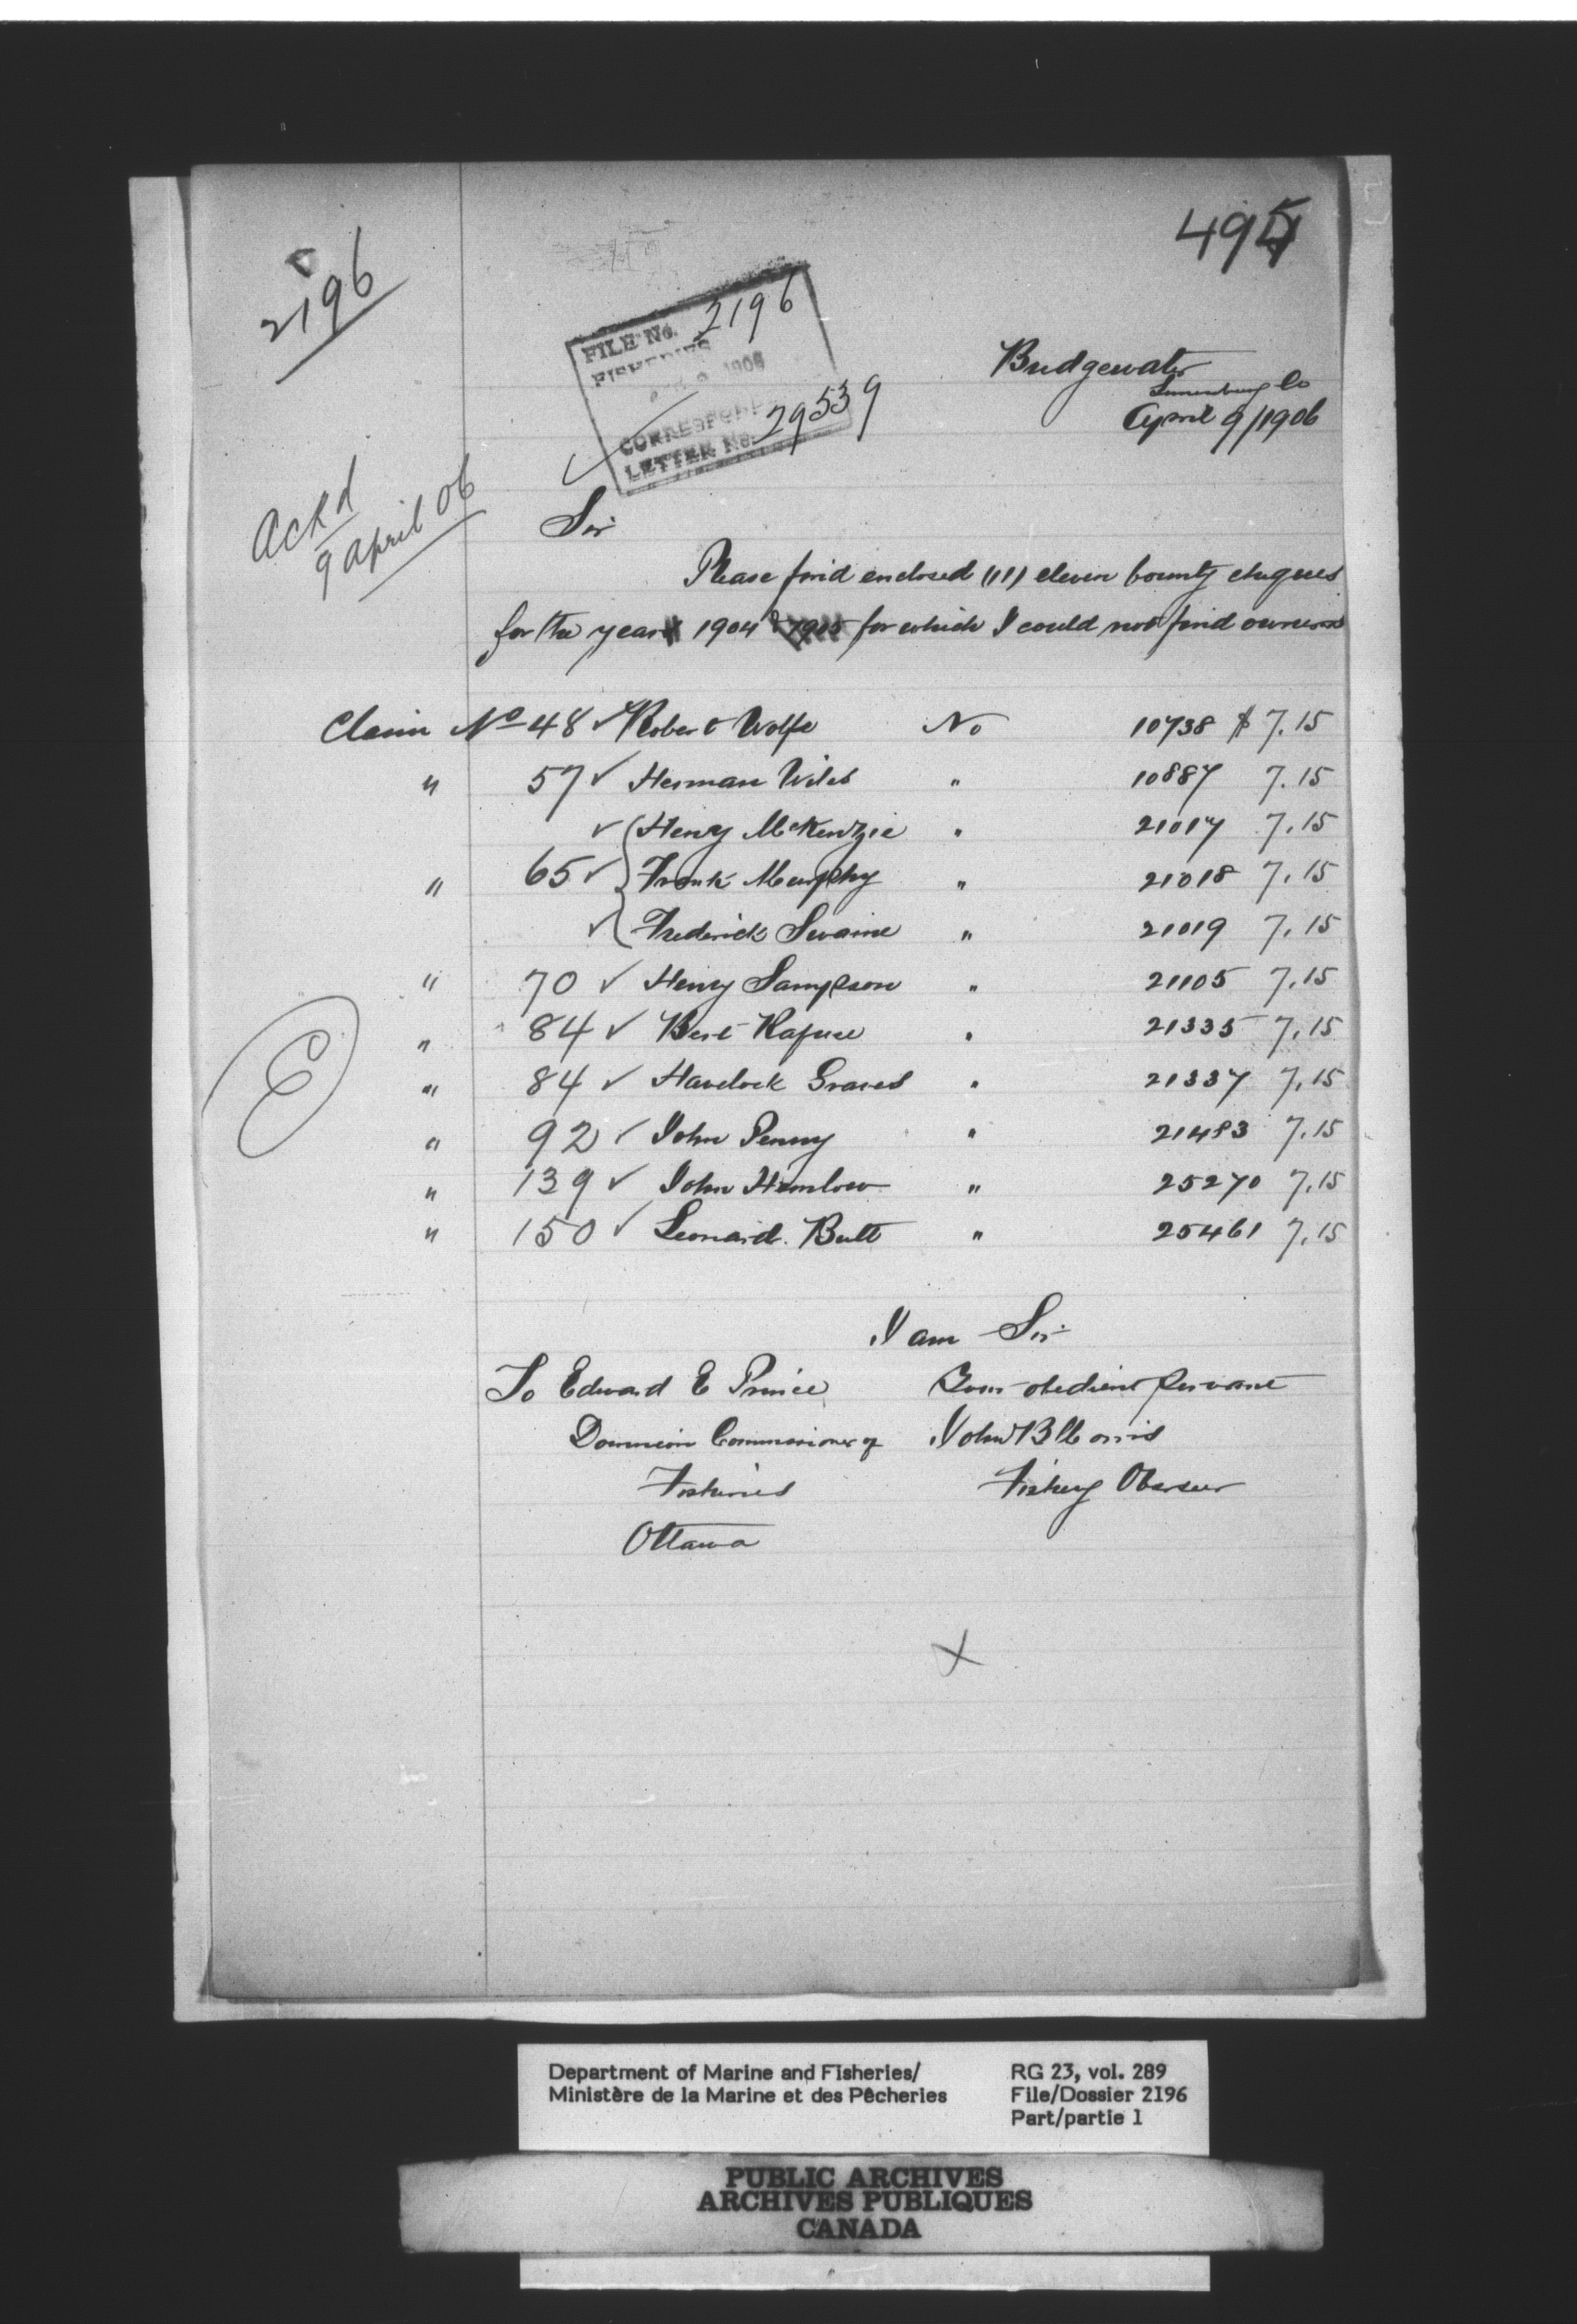 495
2196
FILE No. 2196
FISHERIES
1906
CORRESPOND
LETTER No. 29539
Bridgewater
Lunenburg Co
April 9/1906
Ackd
9 April 06
Sir
Please find enclosed (11) eleven bounty cheques
for the year 1904 & 1905 for which I could not find owners
Claim No 48 ✓ Robert Wolfe No 10738 $ 7.15
" 57 ✓ Herman Wiles " 10887 7.15
✓ Henry McKenzie " 21017 7.15
" 65 ✓ Frank Murphy " 21018 7.15
✓ Frederick Swaine " 21019 7.15
" 70 ✓ Henry Sampson " 21105 7.15
" 84 ✓ Bert Rafuse " 21335 7.15
" 84 ✓ Havelock Graves " 21337 7.15
" 92 ✓ John Penny " 21483 7.15
" 139 ✓ John Hamlow " 25270 7.15
" 150 ✓ Leonard Butt " 25461 7.15
E
I am Sir
To Edward E Prince Your obedient Servant
Dominion Commissioner of John B Morris
Fisheries Fishery Oberseer
Ottawa
X
Department of Marine and Fisheries/ RG 23, vol. 289
Ministère de la Marine et des Pêcheries File/Dossier 2196
Part/partie 1
PUBLIC ARCHIVES
ARCHIVES PUBLIQUES
CANADA